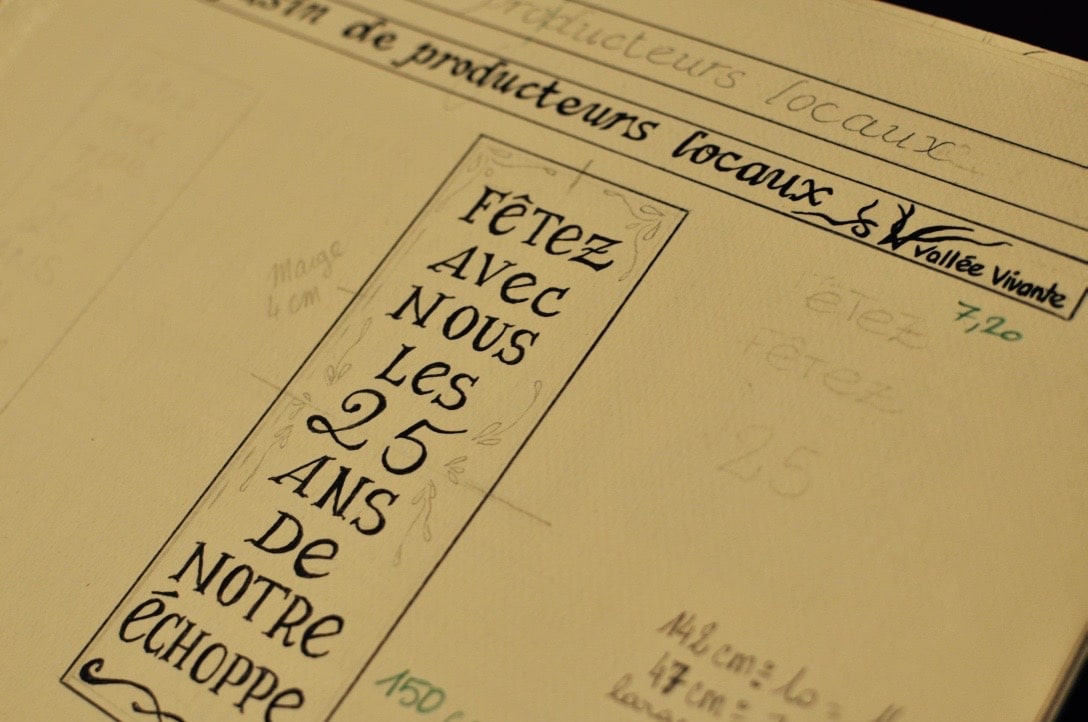 producteurs locaux
de producteurs locaux Vallée Vivante
7,20
FêTeZ
AVec
NOUS
Les
25
ANS
De
NOTRe
éCHOPPe
Marge
4 cm
FêTeZ
FêTeZ
25
150
142 cm =
47 cm =